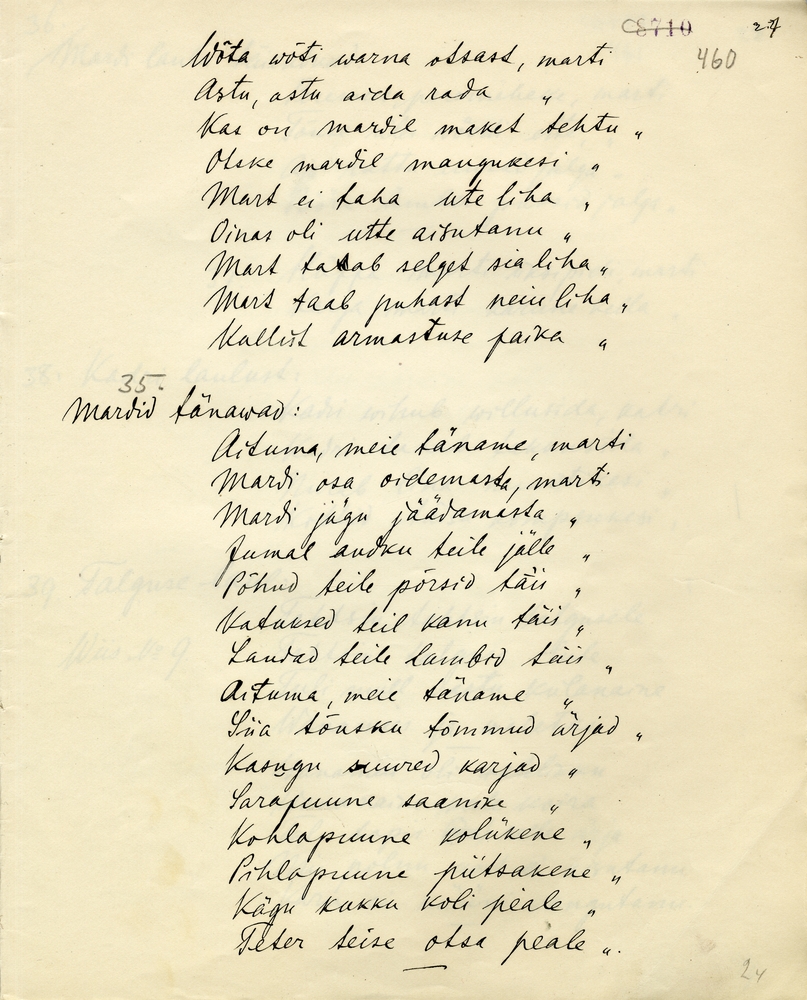 C8710
27
460
Wõta wõti warna otsast, marti
Astu, astu aida rada "
Kas on mardil maket tehtu "
Otske mardil mangukesi "
Mart ei taha ute liha "
Oinas oli utte aisutanu "
Mart tahab selget sia liha "
Mart taab puhast neiu liha "
Kullist armastuse paika "
35.
Mardid tänawad:
Aituma, meie täname, marti
Mardi osa oidemasta, marti
Mardi jägu jäädamasta "
Jumal andku teile jälle "
Põhud teile põrsid täis "
Katuksed teil kanu täis "
Laudad teile lambid täis "
Aituma, meie täname "
Siia tõusku tõmmud ärjad "
Kasugu suured karjad "
Sarapuune saanike "
Kohlapuune kolükene "
Pihlapuune piitsakene "
Kägu kukku koli peale "
Teter teise otsa peale ".
24